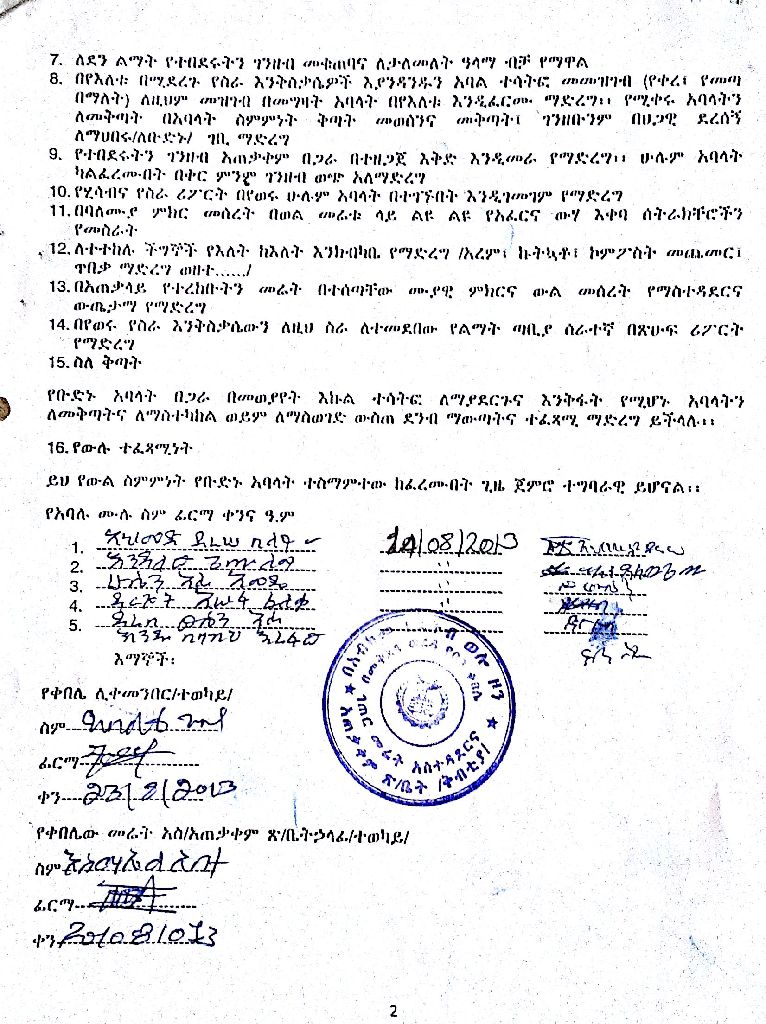 7. ለደን ልማት የተበደሩትን ገንዘብ መቆጠብና ለታለመለት ዓላማ ብቻ የማዋል
8. በየእለቱ በሚደረጉ የስራ እንቅስቃሴዎች እያንዳንዱን አባል ተሳትፎ መመዝገብ (የቀረ፣ የመጣ
በማለት) ለዚህም መዝገብ በመግዛት አባላት በየእለቱ እንዲፈርሙ ማድረግ፡፡ የሚቀሩ አባላትን
ለመቅጣት በአባላት ስምምነት ቅጣት መወሰንና መቅጣት፣ ገንዘቡንም በህጋዊ ደረሰኝ
ለማህበሩ/ለቡድኑ/ ገቢ ማድረግ
9. የተበደሩትን ገንዘብ አጠቃቀም በጋራ በተዘጋጀ እቅድ እንዲመራ የማድረግ፡፡ ሁሉም አባላት
ካልፈረሙበት በቀር ምንም ገንዘብ ወጭ አለማድረግ
10. የሂሳብና የስራ ሪፖርት በየወሩ ሁሉም አባላት በተገኙበት እንዲገመገም የማድረግ
11. በባለሙያ ምክር መሰረት በወል መሬቱ ላይ ልዩ ልዩ የአፈርና ውሃ እቀባ ስትራክቸሮችን
የመስራት
12. ለተተከሉ ችግኞች የእለት ከእለት እንክብካቤ የማድረግ /አረም፣ ኩትኳቶ፣ ኮምፖስት መጨመር፣
ጥበቃ ማድረግ ወዘተ....../
13. በአጠቃላይ የተረከቡትን መሬት በተሰጣቸው ሙያዊ ምክርና ውል መሰረት የማስተዳደርና
ውጤታማ የማድረግ
14. በየወሩ የስራ እንቅስቃሴውን ለዚህ ስራ ለተመደበው የልማት ጣቢያ ሰራተኛ በጽሁፍ ሪፖርት
የማድረግ
15. ስለ ቅጣት
የቡድኑ አባላት በጋራ በመወያየት እኩል ተሳትፎ ለማያደርጉና እንቅፋት የሚሆኑ አባላትን
ለመቅጣትና ለማስተካከል ወይም ለማስወገድ ውስጠ ደንብ ማውጣትና ተፈጻሚ ማድረግ ይችላሉ፡፡
16. የውሉ ተፈጻሚነት
ይህ የውል ስምምነት የቡድኑ አባላት ተስማምተው ከፈረሙበት ጊዜ ጀምሮ ተግባራዊ ይሆናል፡፡
የአባሉ ሙሉ ስም ፊርማ ቀንና ዓ.ም
1. 14/08/2013
2.
3.
4.
5.
እማኞች፡
የቀበሌ ሊተመንበር/ተወካይ/
ስም
ፊርማ
ቀን 23/8/2013
የቀበሌው መሬት አስ/አጠቃቀም ጽ/ቤትኃላፊ/ተወካይ/
ስም
ፊርማ
ቀን
2